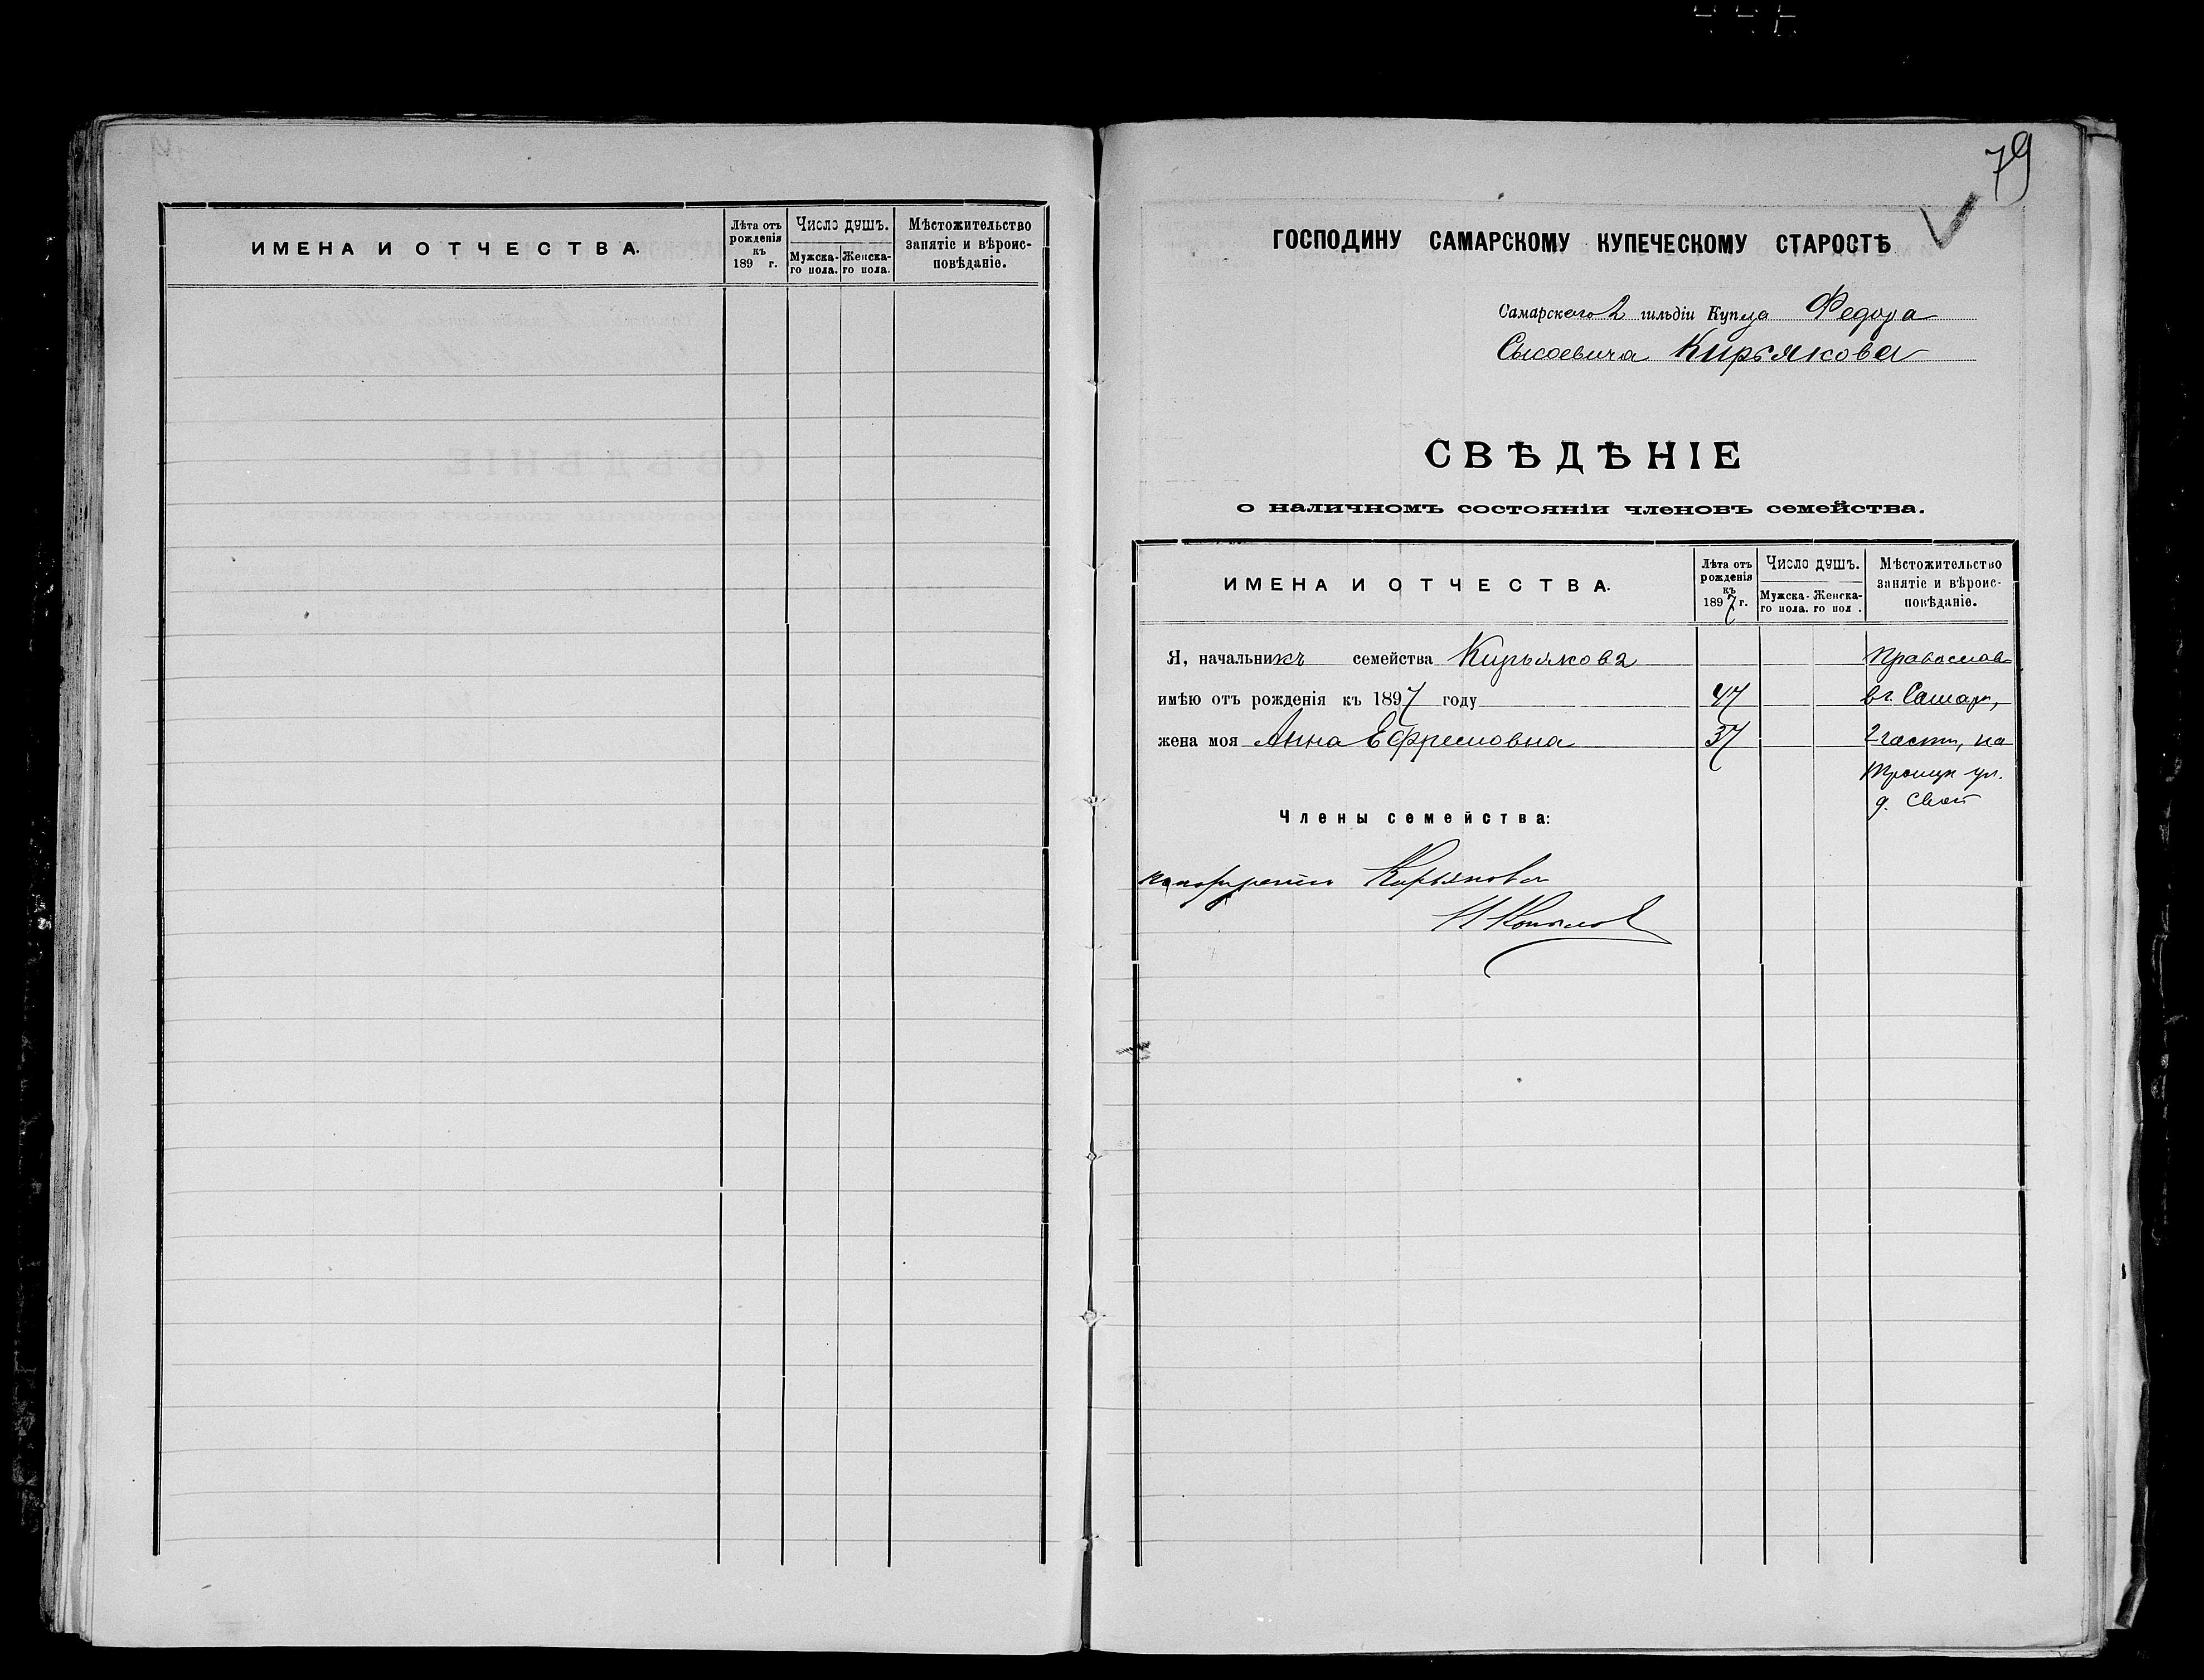 ИМЕНА И ОТЧЕСТВА.
Лѣта отъ рожденія къ 189 г.
Число душъ.
Мужска-го пола.
Женска-го пола.
Мѣстожительство
занятіе и вѣроис-
повѣданіе.
79
ГОСПОДИНУ САМАРСКОМУ КУПЕЧЕСКОМУ СТАРОСТѢ
Самарского 2 гильдіи Купца Федора
Сысоевича Кирьякова
СВѢДѢНІЕ
о наличномъ состояніи членовъ семейства.
ИМЕНА И ОТЧЕСТВА.
Лѣта отъ рожденія къ 1897 г.
Число душъ.
Мужска-го пола.
Женска-го пол .
Мѣстожительство
занятіе и вѣроис-
повѣданіе.
Я, начальникъ семейства Кирьяковъ Православ
имѣю отъ рожденія къ 1897 году 47 въ Самар,
жена моя Анна Ефремовна 37 2 части, на
Троицк ул.
д. свой
Члены семейства:
Кирьякова